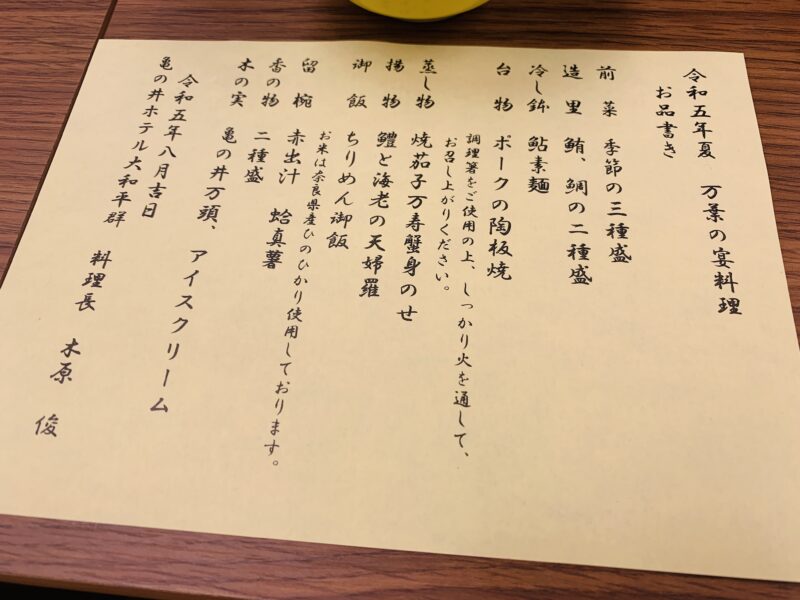 令和五年夏　万葉の宴料理
お品書き
前菜　季節の三種盛
造里　鮪、鯛の二種盛
冷し鉢　鮎素麺
台物　ポークの陶板焼
調理箸をご使用の上、しっかり火を通して、
お召し上がりください。
蒸し物　焼茄子万寿蟹身のせ
揚物　鱧と海老の天婦羅
御飯　ちりめん御飯
お米は奈良県産ひのひかり使用しております。
留椀　赤出汁　蛤真薯
香の物　二種盛
木の実　亀の井万頭、アイスクリーム
令和五年八月吉日
亀の井ホテル大和平群　料理長　木原　俊